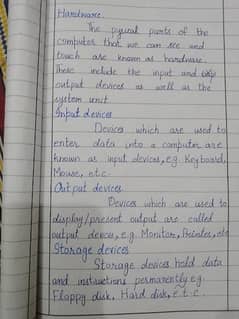 Hardware
The pysical parts of the
computer that we can see and
touch are known as hardware.
These include the input and
output devices as well as the
system unit.
Input devices
Devices which are used to
enter data into a computer are
known as input devices, e.g. Keyboard,
Mouse, etc.
Output devices
Devices which are used to
display/present output are called
output devices, e.g. Monitor, Printer, etc
Storage devices
Storage devices hold data
and instructions permanently e.g.
Floppy disk, Hard disk, e.t.c.